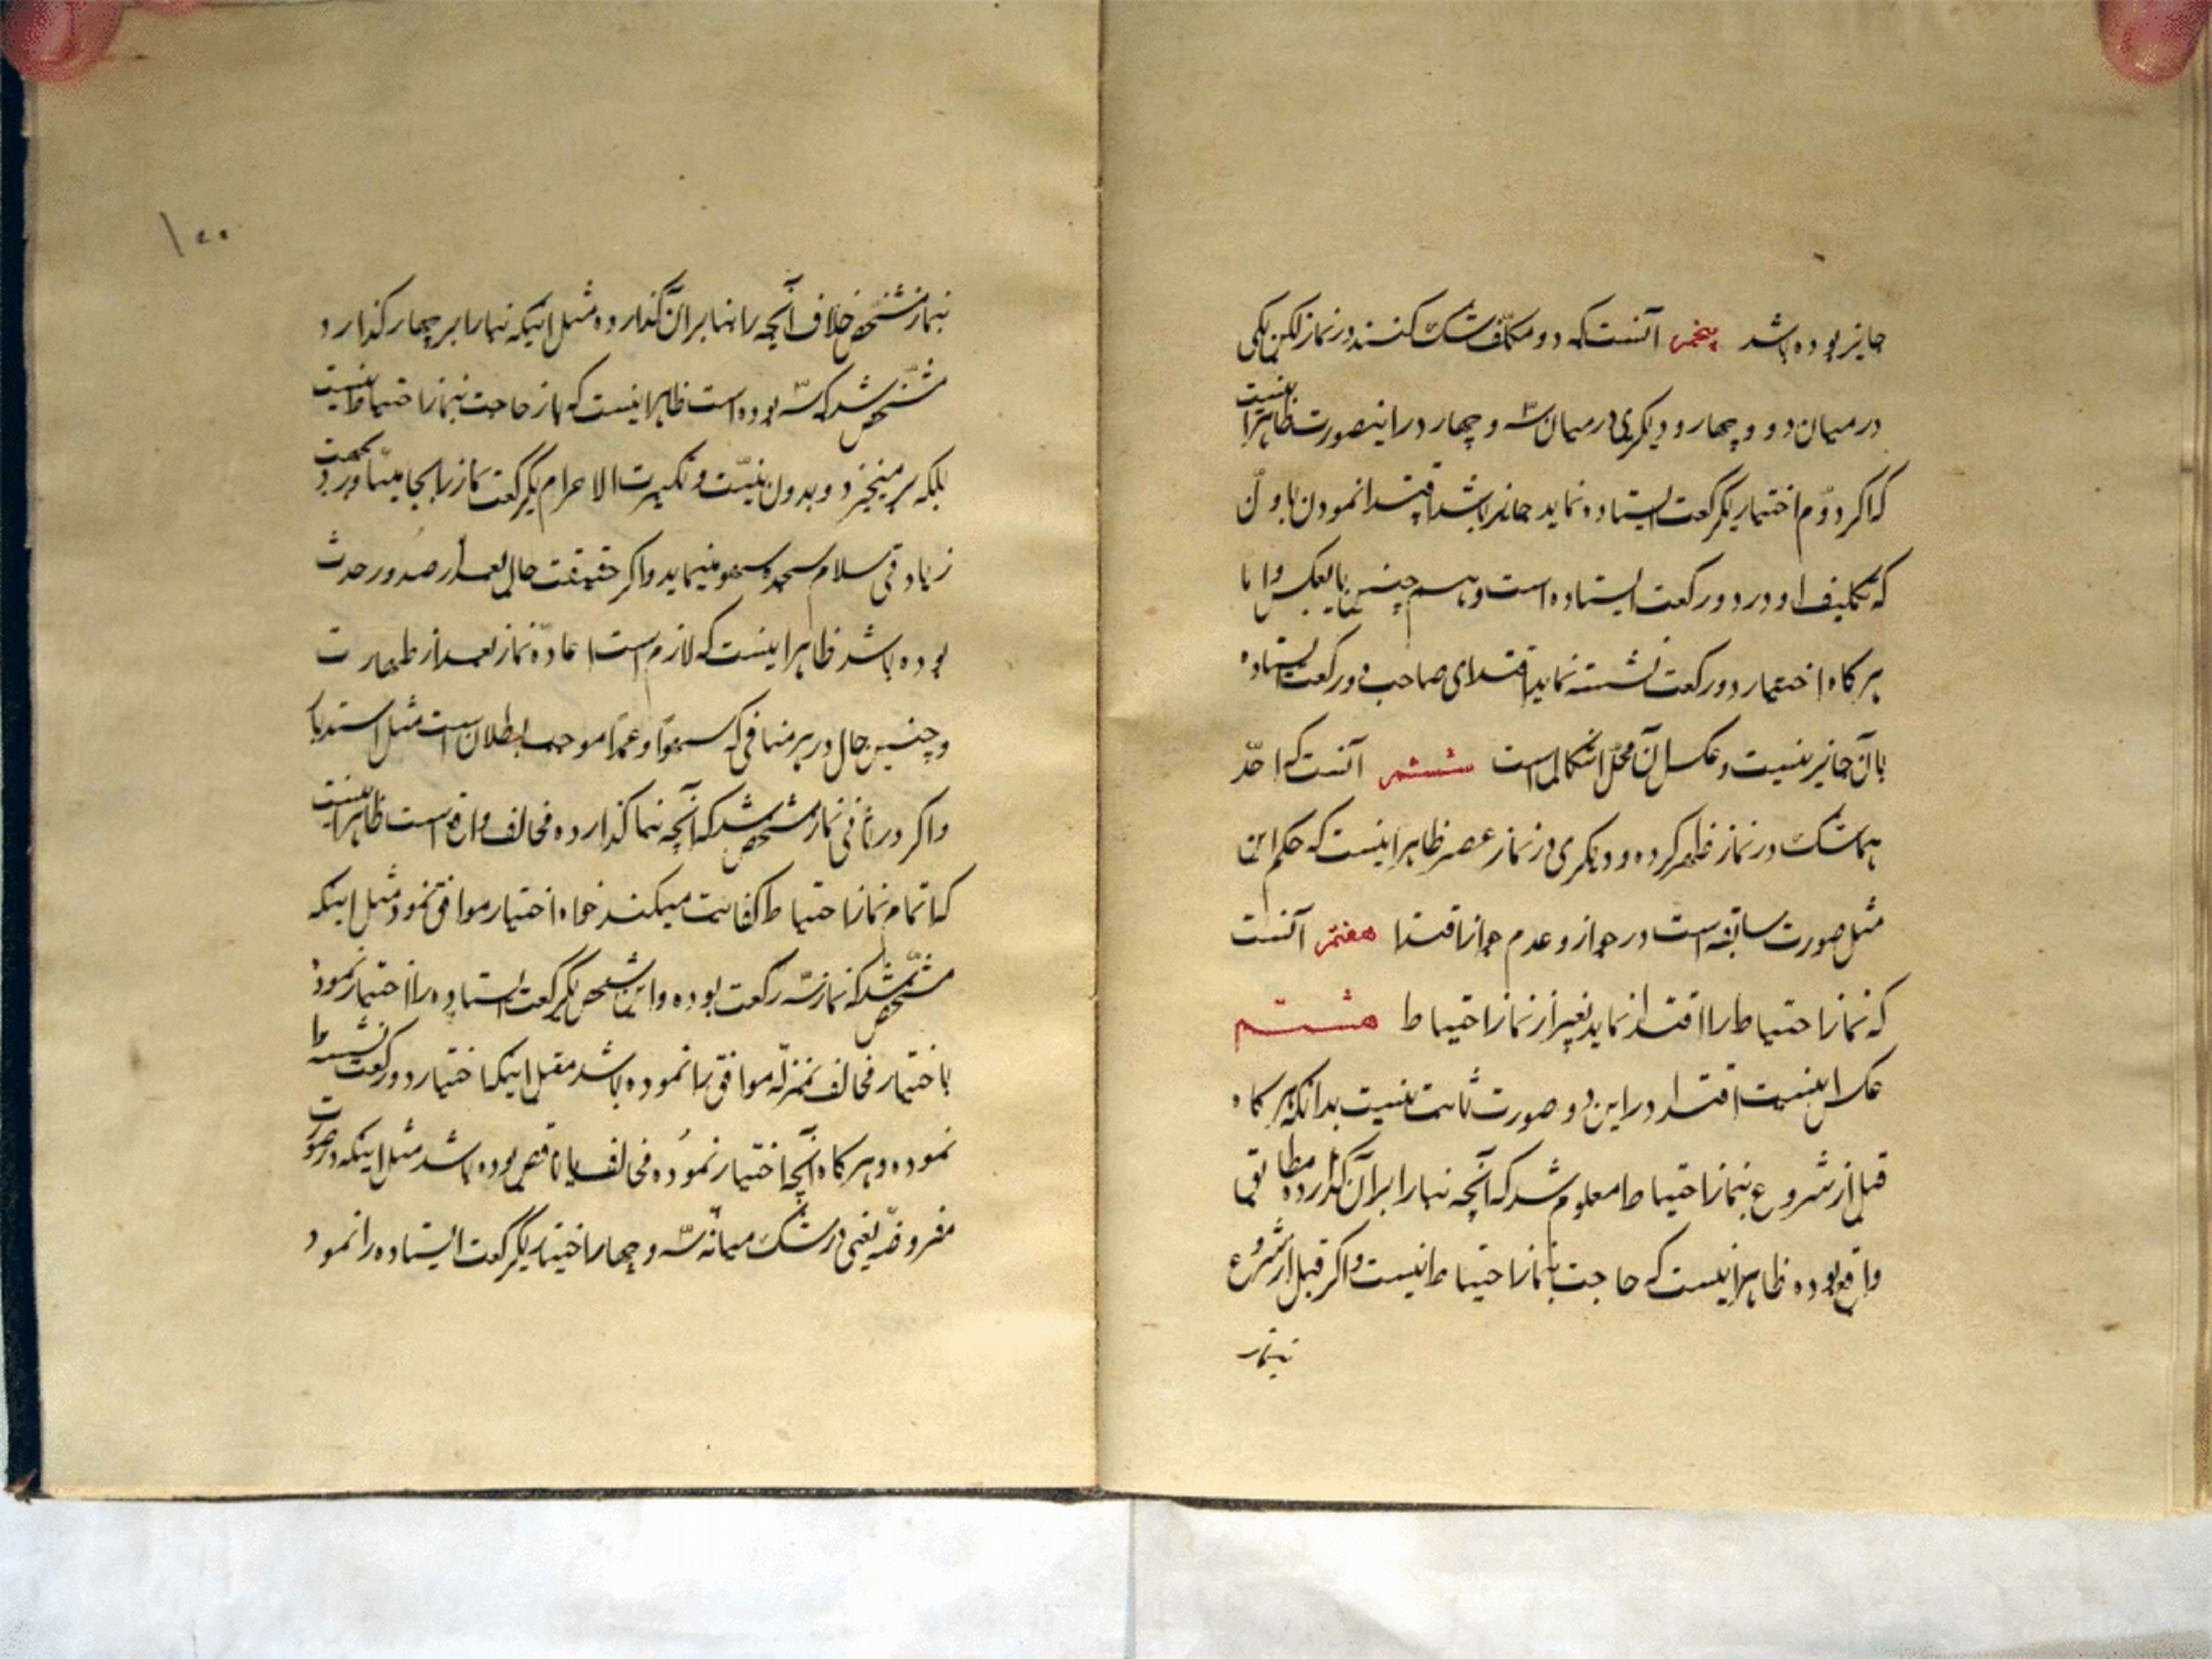 جایز بوده باشد پنجم آنست که دو مکلف شک کنند در نماز لکن یکی
در میان دو و چهار و دیگری در میان سه و چهار در اینصورت ظاهرا اینست
که اگر دوّم اختیار یکرکعت ایستاده نماید جایز باشد اقتدا نمودن باوّلی
که تکلیف او در دو رکعت ایستاده است و هم چنین بالعکس و اما
هر گاه اختیار دو رکعت نشسته نماید اقتدای صاحب دو رکعت ایستاده
بآن جایز نیست و عکس آن محلّ اشکال است ششم آنست که احد
هما شک در نماز ظهر کرده و دیگری در نماز عصر ظاهرا اینست که حکم این
مثل صورت سابقه است در جواز و عدم جواز اقتدا هفتم آنست
که نماز احتیاط را اقتدا نماید بغیر از نماز احتیاط هشتم
عکس اینست اقتدا در این دو صورت ثابت نیست بدانکه هر گاه
قبل از شروع بنماز احتیاط معلوم شد که آنچه بنا را بر آن گذارده مطابق
واقع بوده ظاهرا اینست که حاجت بنماز احتیاط نیست و اگر قبل از شروع
بنماز
۱۰۰
بنماز مشخّص خلاف آنچه را بنا بر آن گذارده مثل اینکه بنا را بر چهار گذارد
مشخّص شد که سه بوده است ظاهرا اینست که باز حاجت بنماز احتیاط نیست
بلکه بر میخیزد و بدون نیّت و تکبیرت الاحرام یکرکعت نماز را بجا میآورد بجهت
زیادتی سلام سجده سهو مینماید و اگر حقیقت حال بعد از صدور حدث
بوده باشد ظاهرا اینست که لازم است اعادّه نماز بعد از طهارت
و چنین حال در هر منافی که سهواً و عمداً موجب بطلان است مثل استدبار
و اگر در اثنای نماز مشخّص شد که آنچه بنا گذارده مخالف واقع است ظاهرا اینست
که اتمام نماز احتیاط کفایت میکند خواه اختیار موافق نمود مثل اینکه
مشخّص شد که نماز سه رکعت بوده و این شخص یکرکعت ایستاده را اختیار نمود
با اختیار مخالف بمنزله موافق را نموده باشد مثل اینکه اختیار دو رکعت نشسته را
نموده و هر گاه آنچه اختیار نموده مخالف یا ناقص بوده باشد مثل اینکه در صورت
مفروضّه یعنی در شک میانه سه و چهار اختیار یکرکعت ایستاده را نمود